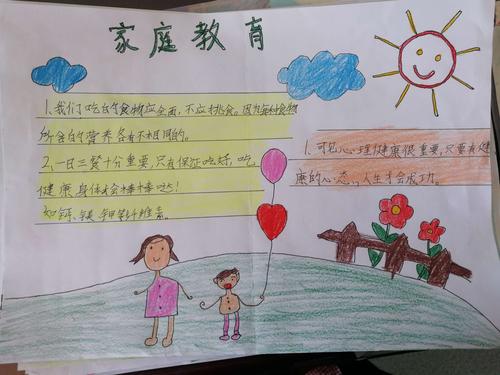 家庭教育
1、我们吃的食物应全面,不应挑食。因为每种食物
所含的营养各有不相同的。
2、一日三餐十分重要,只有保证吃好,吃
健康,身体才会棒棒哒!
如钙、镁、钾等纤维素。
1、可见心理健康很重要,只要有健
康的心态,人生才会成功。